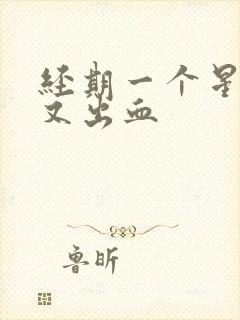 经期一个星
又出血
鲁昕